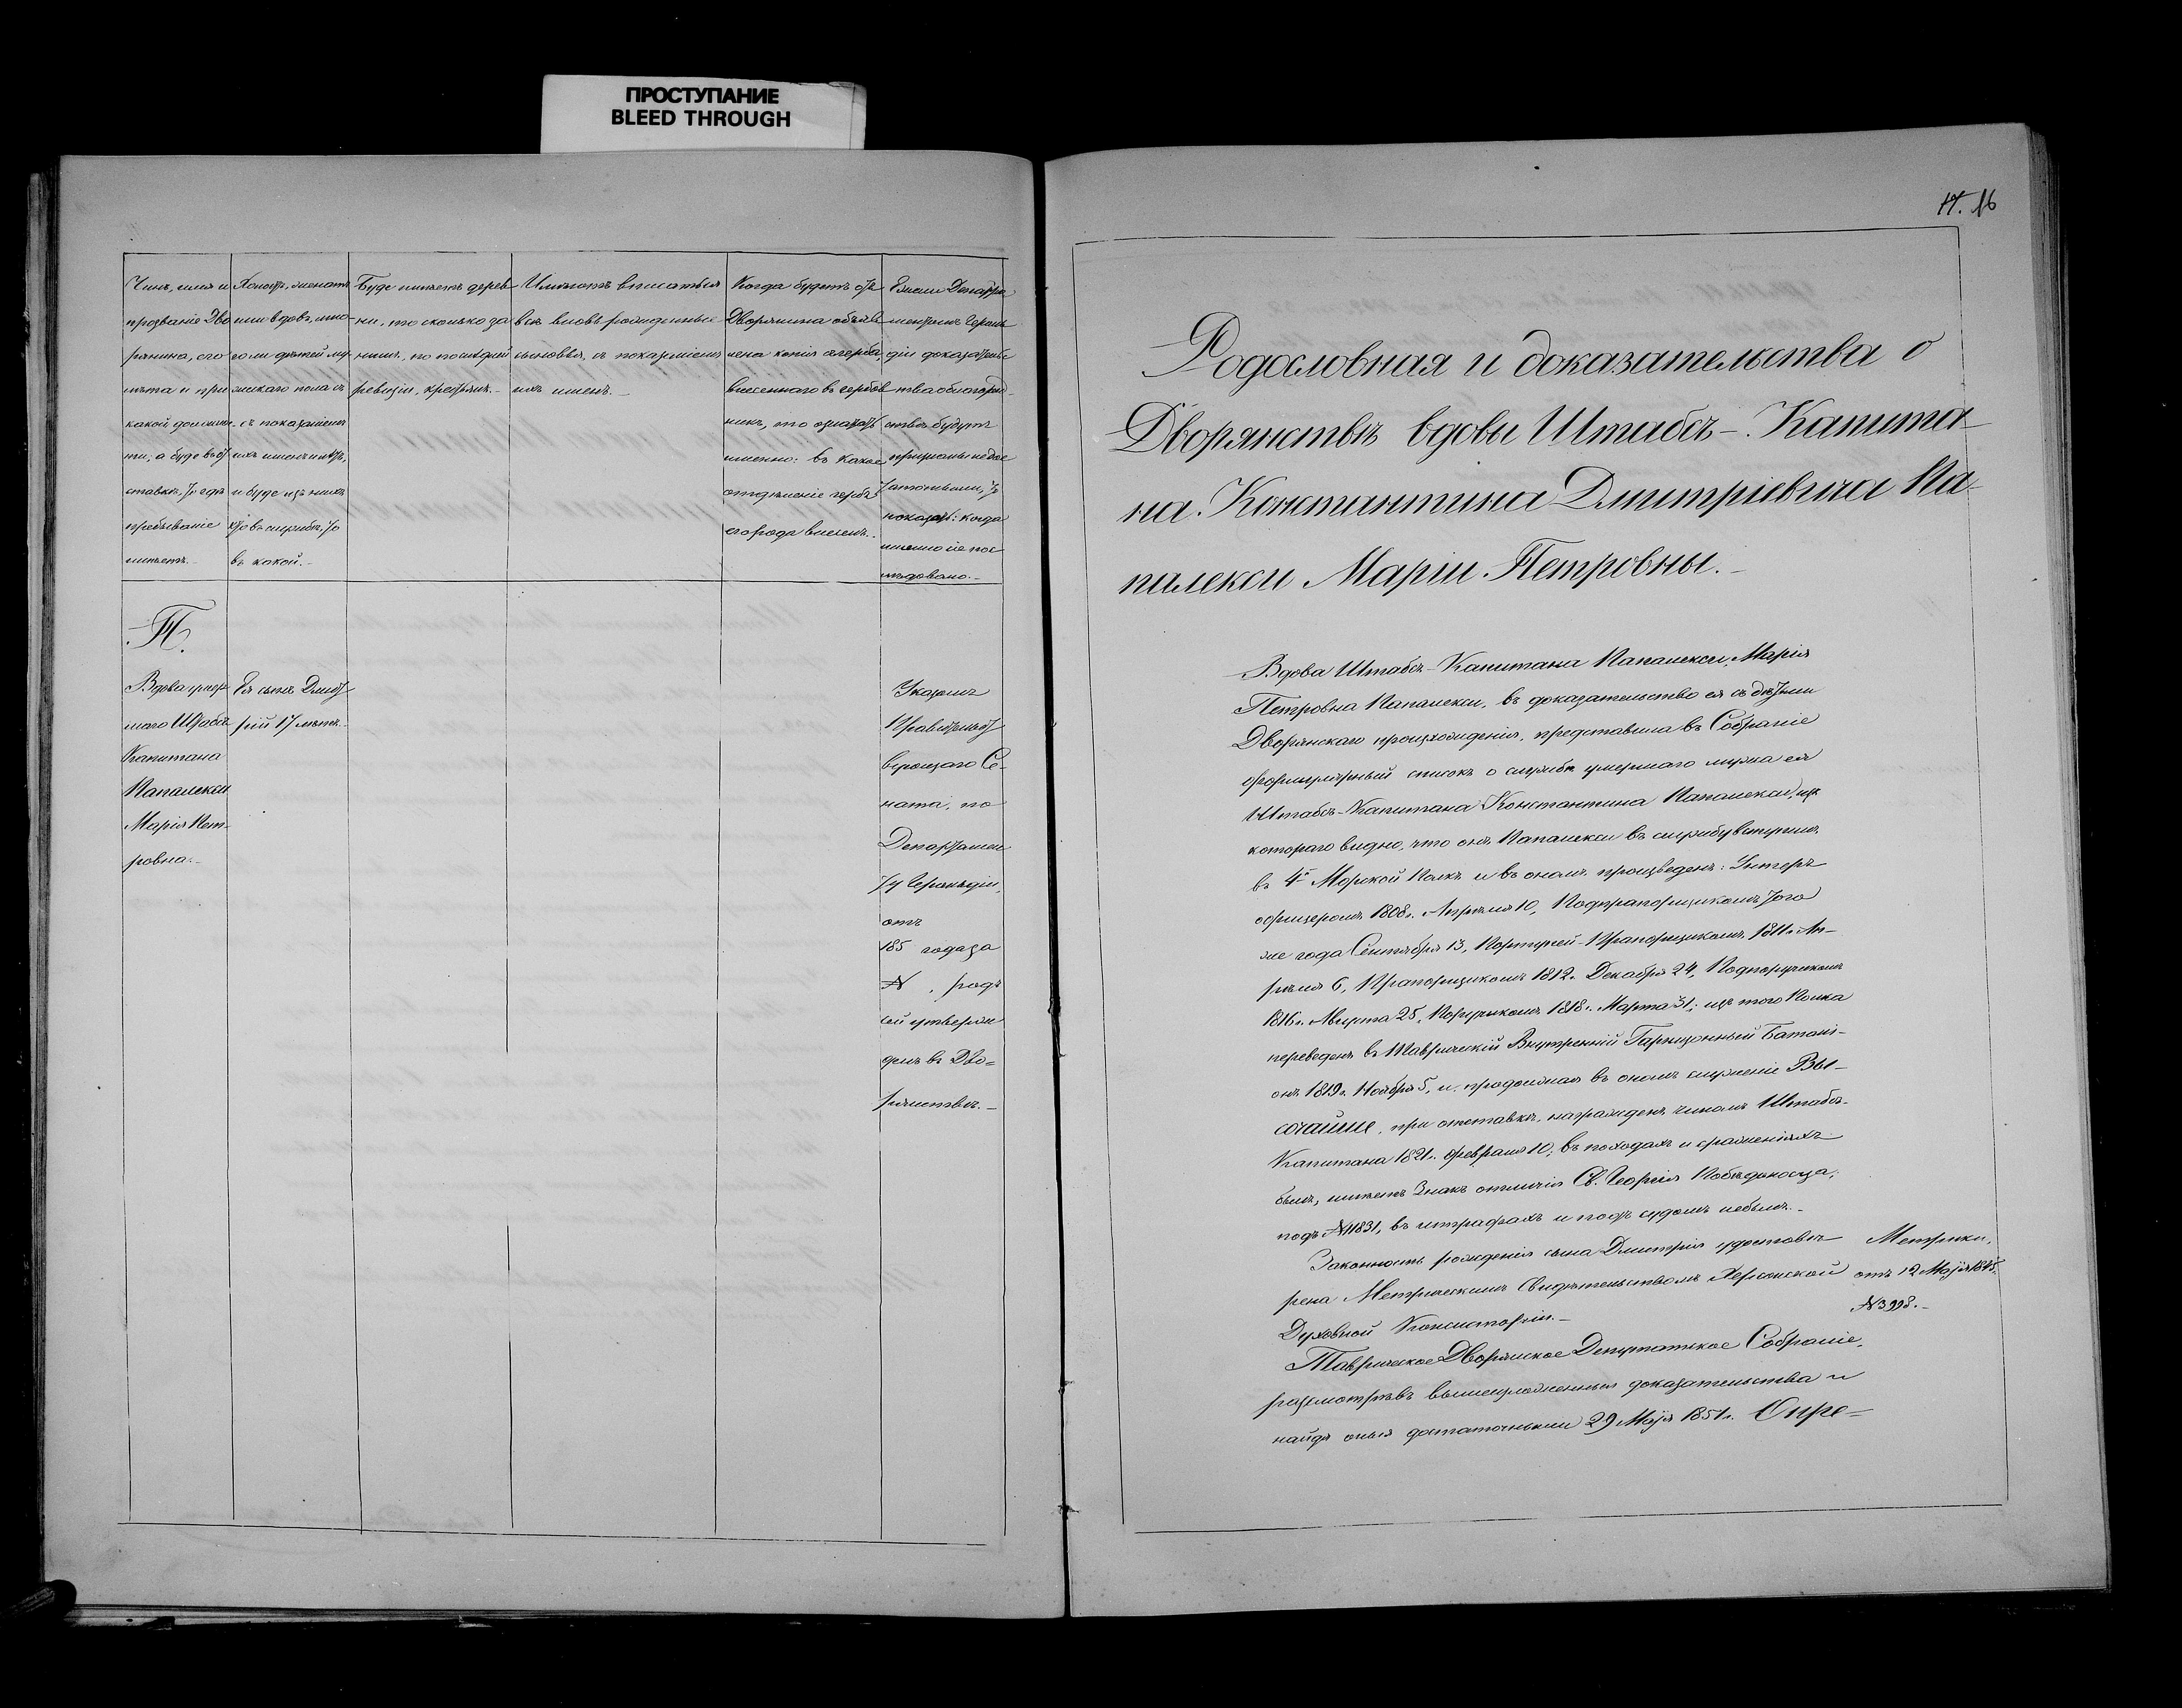 ПРОСТУПАНИЕ
BLEED THROUGH
Чинъ, имя и
прозваніе Дво
рянина, его
лѣта и при
какой должнос
ти; а буде въ от
ставкѣ, то гдѣ
пребываніе
имѣетъ.
Холостъ, женатъ
или вдовъ, мно-
го ли дѣтей му
жскаго пола съ
съ показаніемъ
ихъ именъ и лѣтъ,
и буде изъ нихъ
кто въ службѣ, то
въ какой.-
Буде имѣетъ дерев
ни, то сколько за
нимъ, по послѣдней
ревизіи, крестьянъ.-
Имѣютъ вписаться
всѣ вновь рожденные
сыновья, съ показаніемъ
ихъ именъ.-
Когда будетъ отъ
Дворянина объяв
лена копія съ герба,
внесеннаго въ гербов
никъ, то означать
именно: въ какое
отдѣленіе гербъ
его рода внесенъ.-
Ежели Департа
ментомъ Героль
діи доказатель
ства о благород
ствѣ будутъ
признаны недос
таточными, то
показать: когда
именно сіе пос
лѣдовало.-
П.
Вдова умер
шаго Штабсъ
Капитана
Папалекси
Марія Пет-
ровна.-
Ея сынъ Димит
рій 17 лѣтъ.-
Указомъ
Правительст
вующаго Се-
ната, по
Департамен
ту Герольдіи,
отъ
185 года за
№ , родъ
сей утверж
денъ въ Дво=
рянствѣ.-
17. 16
Родословная и доказательства о
Дворянствѣ вдовы Штабсъ-Капита-
на Константина Дмитріевича Па-
палекси Маріи Петровны.-
Вдова Штабсъ-Капитана Папалекси, Марія
Петровна Папалекси, въ доказательство ея съ дѣтьми
Дворянскаго происхожденія, представила въ Собраніе
формулярный списокъ о службѣ умершаго мужа ея
Штабсъ-Капитана Константина Папалекси, изъ
котораго видно, что онъ Папалекси въ службу вступилъ
въ 4й Морской Полкъ и въ ономъ произведенъ: Унтеръ
офицеромъ 1808г. Апрѣля 10, Подпрапорщикомъ того
же года Сентября 13, Портупей-Прапорщикомъ 1811г. Ап-
рѣля 6, Прапорщикомъ 1812г. Декабря 24, Подпоручикомъ
1816г. Августа 25, Поручикомъ 1818г. Марта 31; изъ того Полка
переведенъ въ Таврическій Внутренній Гарнизонный Баталі-
онъ 1819г. Ноября 5, и продолжая въ ономъ служеніе Вы-
сочайше, при отставкѣ, награжденъ чиномъ Штабсъ-
Капитана 1821г. Февраля 10; въ походахъ и сраженіяхъ
былъ, имѣетъ Знакъ отличія Св. Георгія Побѣдоносца,
подъ №11831, въ штрафахъ и подъ судомъ небылъ.-
Законность рожденія сына Дмитрія удостовѣ-
рена Метрическимъ Свидѣтельствомъ Херсонской
Духовной Консисторіи.-
Метрики,
отъ 12 Маія 1845г.
№3998.-
Таврическое Дворянское Депутатское Собраніе,
разсмотрѣвъ вышеизложенныя доказательства и
найдя оныя достаточными 29 Маія 1851г. Опре=